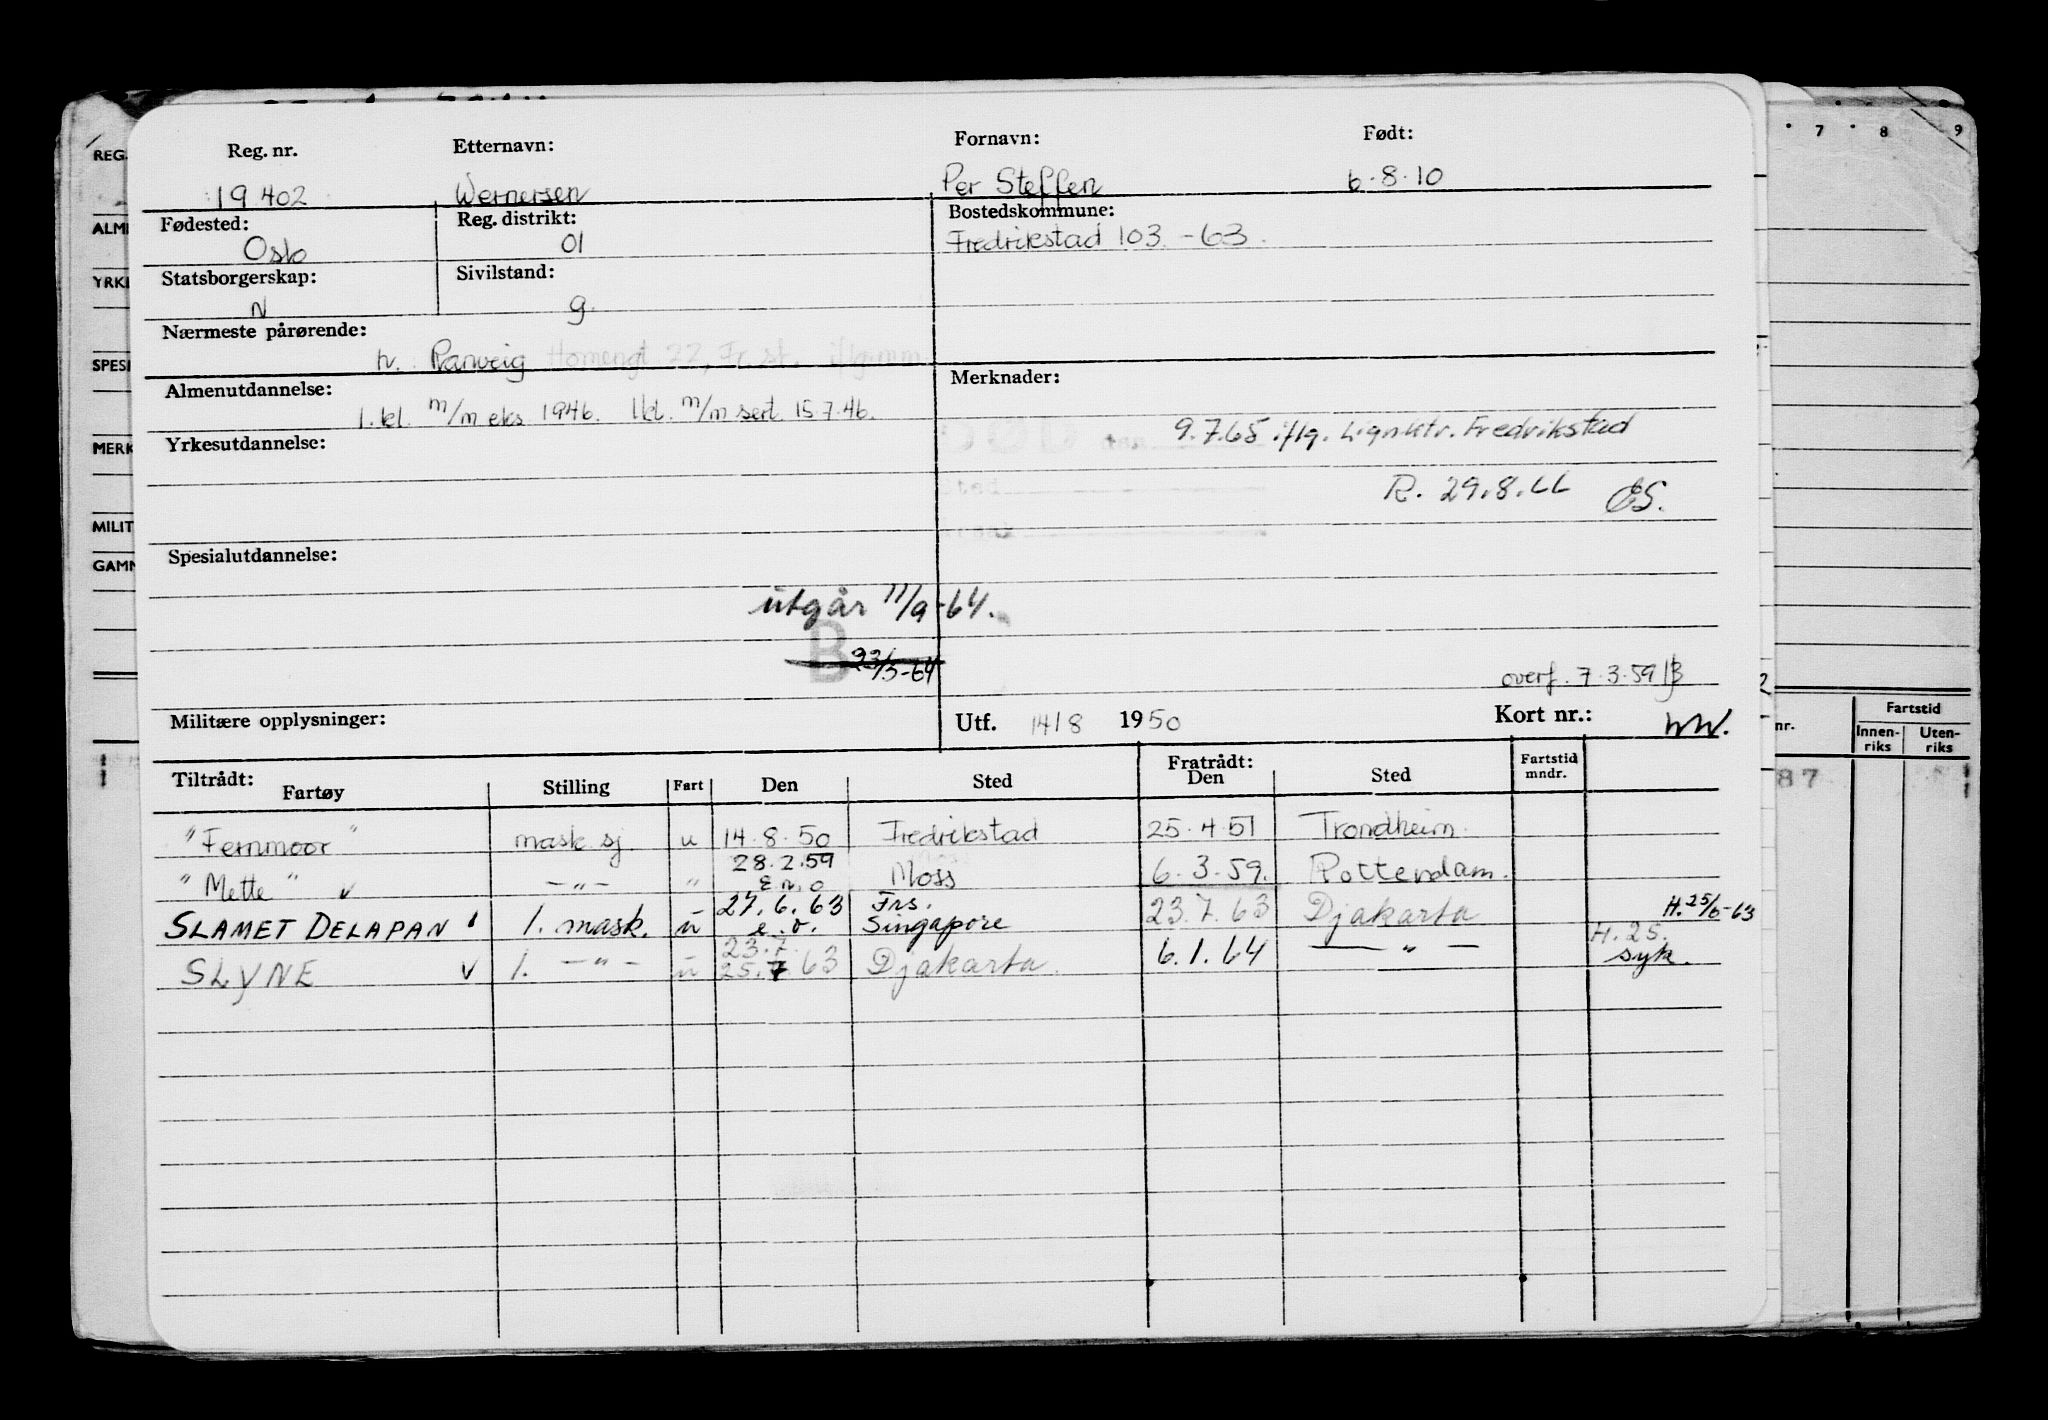 Reg. nr. Etternavn: Fornavn: Født:
19 402 Wernersen Per Steffen 6.8.10
Fødested: Reg. distrikt: Bostedskommune:
Oslo 01 Fredrikstad 103 -63.
Statsborgerskap: Sivilstand:
N g.
Nærmeste pårørende:
h. Ranveig Homengt 22, Fr.st. iflg. mm
Almenutdannelse: Merknader:
1. kl. m/m eks 1946. 1 kl. m/m sert. 15.7.46.
9.7.65 iflg. Lignktr. Fredrikstad
Yrkesutdannelse:
R. 29.8.66 ES.
Spesialutdannelse:
utgår 11/9-64.
B
23/3-64
overf. 7.3.59
Militære opplysninger: Utf. 14/8 1950 Kort nr.: WW.
Tiltrådt: Fratrådt: Fartstid
Fartøy Stilling Fart Den Sted Den Sted mndr.
"Fernmoor" mask. sj. u 14.8.50 Fredrikstad 25.4.51 Trondheim.
"Mette" v —"— " 28.2.59 Moss 6.3.59. Rotterdam.
SLAMET DELAPAN 1. mask. u 27.6.63 e.o. Frs. Singapore 23.7.63 Djakarta H.25/6-63
SLYNE v 1. —"— u 23.7. 25.7 63 Djakarta. 6.1.64 —"— H.25. syk.
REG.
ALM
YRKE
SPESI
MERK
MILIT
GAMM
7 8 9
2
nr. Fartstid
Innen-riks Uten-riks
87